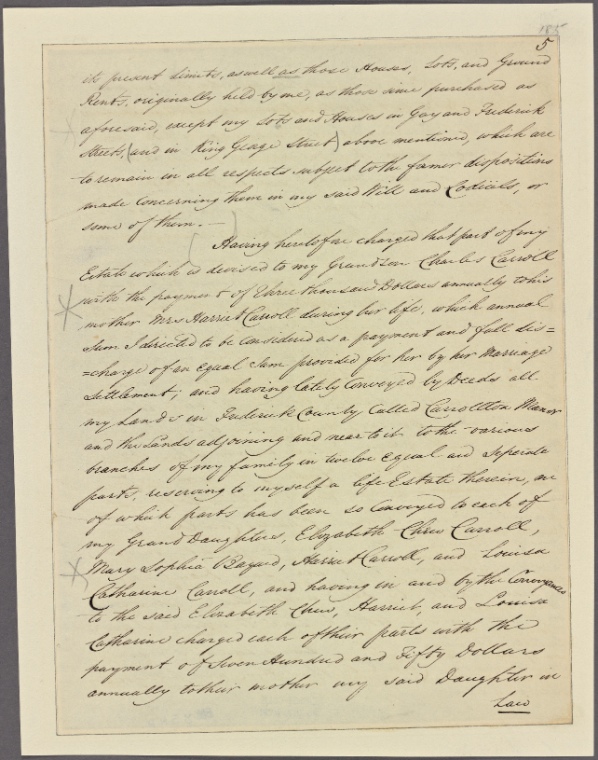 185
5
its present limits, as well as those Houses, Lots, and Ground
Rents, originally held by me, as those since purchased as
aforesaid, except my Lots and Houses in Gay and Frederick
Streets, (and in King George Street) above mentioned, which are
to remain in all respects subject to the former dispositions
made concerning them in my said Will and Codicils, or
some of them.—
Having heretofore charged that part of my
Estate which is devised to my Grandson Charles Carroll
with the payment of Three thousand Dollars annually to his
mother Mrs Harriet Carroll during her life, which annual
Sum I directed to be considered as a payment and full dis=
=charge of an equal Sum provided for her by her Marriage
Settlement; and having lately Conveyed by Deeds all
my Lands in Frederick County Called Carrollton Manor
and the Lands adjoining and near to it to the various
branches of my family in twelve equal and Seperate
parts, reserving to myself a life Estate therein, one
of which parts has been so Conveyed to each of
my Grand Daughters, Elizabeth Chew Carroll,
Mary Sophia Bayard, Harriet Carroll, and Louisa
Catharine Carroll, and having in and by the Conveyances
to the said Elizabeth Chew, Harriet, and Louisa
Catharine charged each of their parts with the
payment of Seven Hundred and Fifty Dollars
annually to their mother my said Daughter in
Law